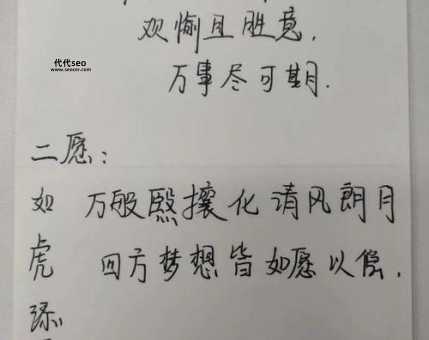 代代seo
欢愉且胜意,
万事尽可期.
二愿:
如 万般熙攘化清风朗月
虎 四方梦想皆如愿以偿.
添